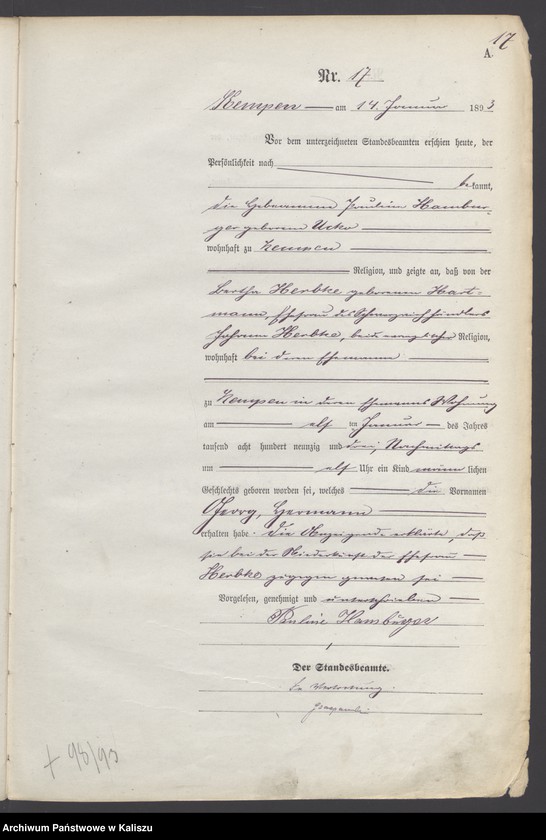 17
A.
Nr. 17
Kempen am 14. Januar 1893
Vor dem unterzeichneten Standesbeamten erschien heute, der
Persönlichkeit nach
bekannt,
die Hebeamme Paulina Hambur-
ger geborene
wohnhaft zu Kempen
Religion, und zeigte an, daß von der
Bertha Herbke geborenen Hart-
mann, Ehefrau des
Johann Herbke, beide evangelischer Religion,
wohnhaft bei deren Ehemanne
zu Kempen in deren Ehemanns Wohnung
am elf ten Januar des Jahres
tausend acht hundert neunzig und drei, Nachmittags
um elf Uhr ein Kind männ lichen
Geschlechts geboren worden sei, welches die Vornamen
Georg, Hermann
erhalten habe. Die Anzeigende erklärte, daß
sie bei der Niederkunft der Ehefrau
Herbke zugegen gewesen sei
Vorgelesen, genehmigt und unterschrieben
Pauline Hamburger
Der Standesbeamte.
In Vertretung.
+ 98/93
Archiwum Państwowe w Kaliszu